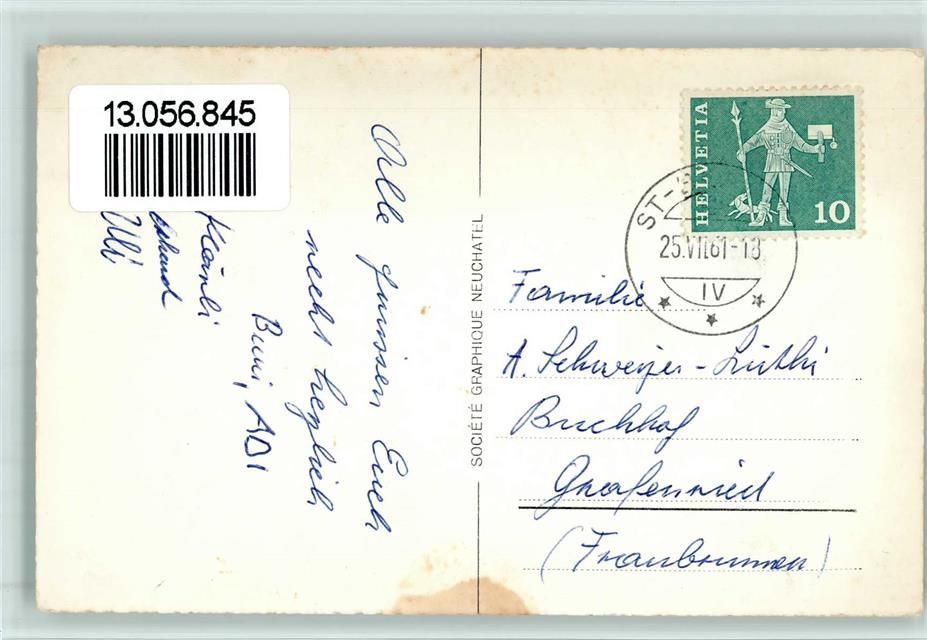 13.056.845
Alle grüssen Euch
recht herzlich
Buui, ADI
Klärli
Uli
SOCIÉTÉ GRAPHIQUE NEUCHATEL
HELVETIA
10
ST-
25.VII.61-18
IV
Familie
A. Schweizer-Lüthi
Buchhof
Grafenried
(Fraubrunnen)